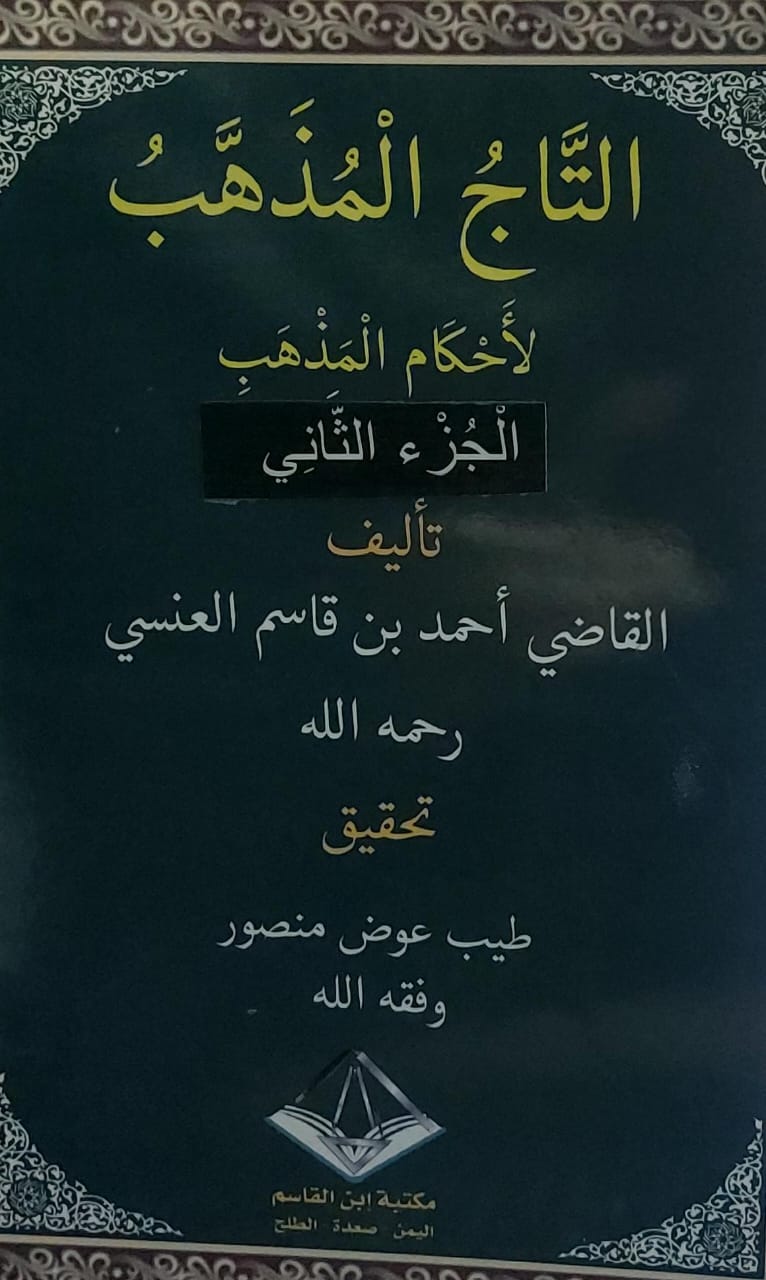 التَّاجُ الْمُذَهَّبُ
لأَحْكَام الْمَذْهَبِ
الْجُزْء الثَّانِي
تأليف
القاضي أحمد بن قاسم العنسي
رحمه الله
تحقيق
طيب عوض منصور
وفقه الله
مكتبة إبن القاسم
اليمن - صعدة - الطلح